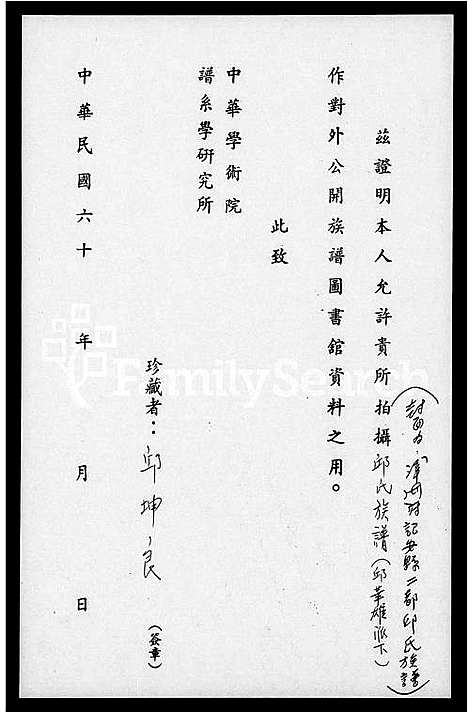 茲證明本人允許貴所拍攝邱氏族譜(邱華雄派下)
(封面為:漳州府詔安縣二都邱氏族譜)
作對外公開族譜圖書舘資料之用。
此致
中華學術院
譜系學硏究所
珍藏者:邱坤良(簽章)
中華民國六十 年 月 日
FamilySearch